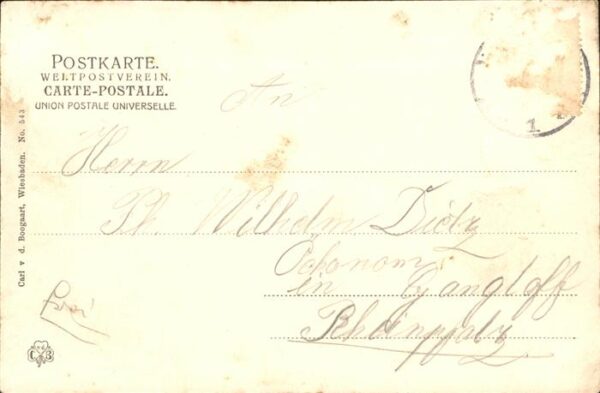 POSTKARTE.
WELTPOSTVEREIN.
CARTE-POSTALE.
UNION POSTALE UNIVERSELLE.
An
Herrn
Ph. Wilhelm Dietz
Ökonom
in Gangloff
Rheinpfalz
Frei
Carl v d. Boogaart, Wiesbaden. No. 543
C B
1